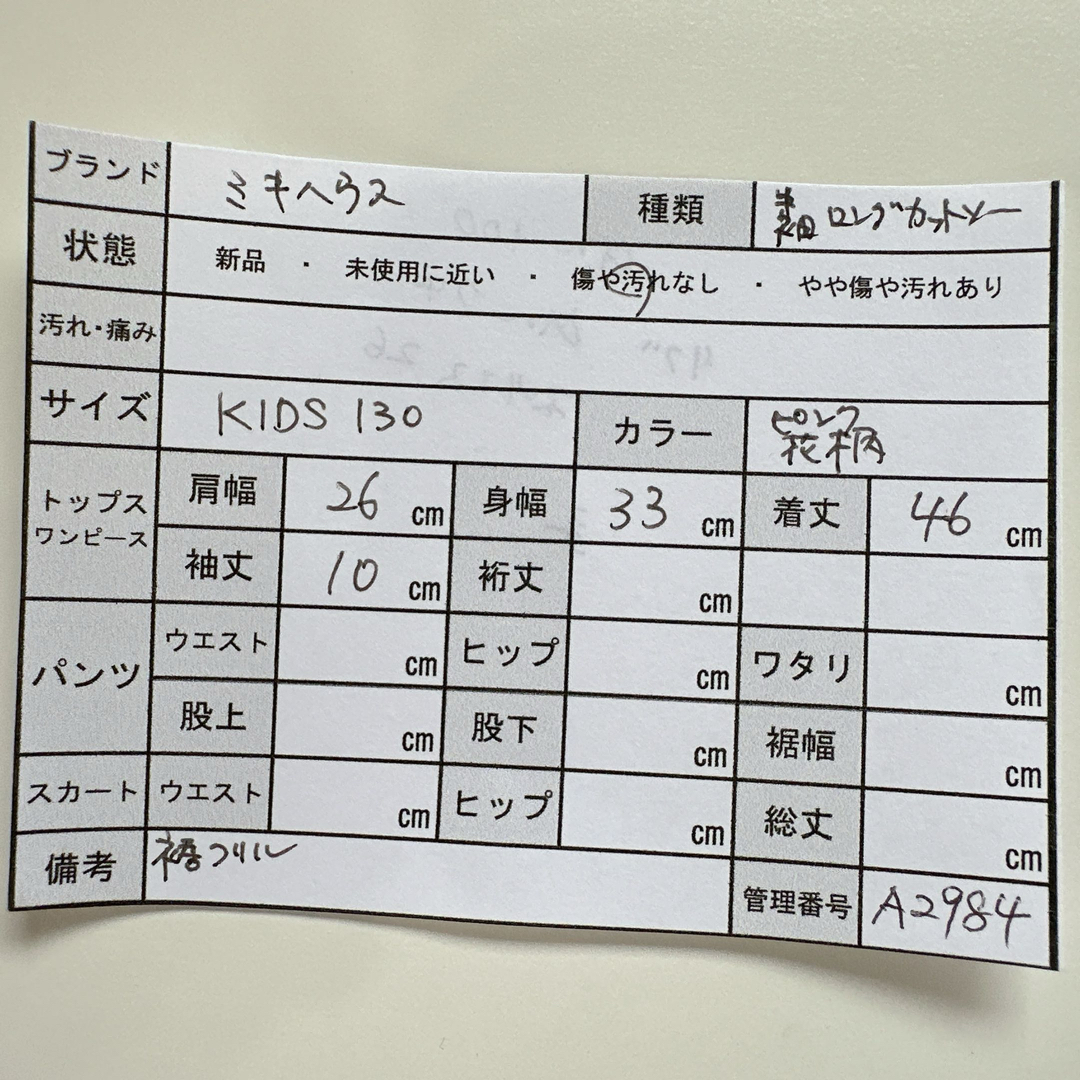 ブランド ミキハウス 種類 半袖 ロングカットソー
状態 新品 ・ 未使用に近い ・ 傷や汚れなし ・ やや傷や汚れあり
汚れ・痛み
サイズ KIDS 130 カラー ピンク
花柄
トップス
ワンピース
肩幅 26 cm 身幅 33 cm 着丈 46 cm
袖丈 10 cm 裄丈 cm
パンツ
ウエスト cm ヒップ cm ワタリ cm
股上 cm 股下 cm 裾幅 cm
スカート ウエスト cm ヒップ cm 総丈 cm
備考 裾フリル 管理番号 A2984